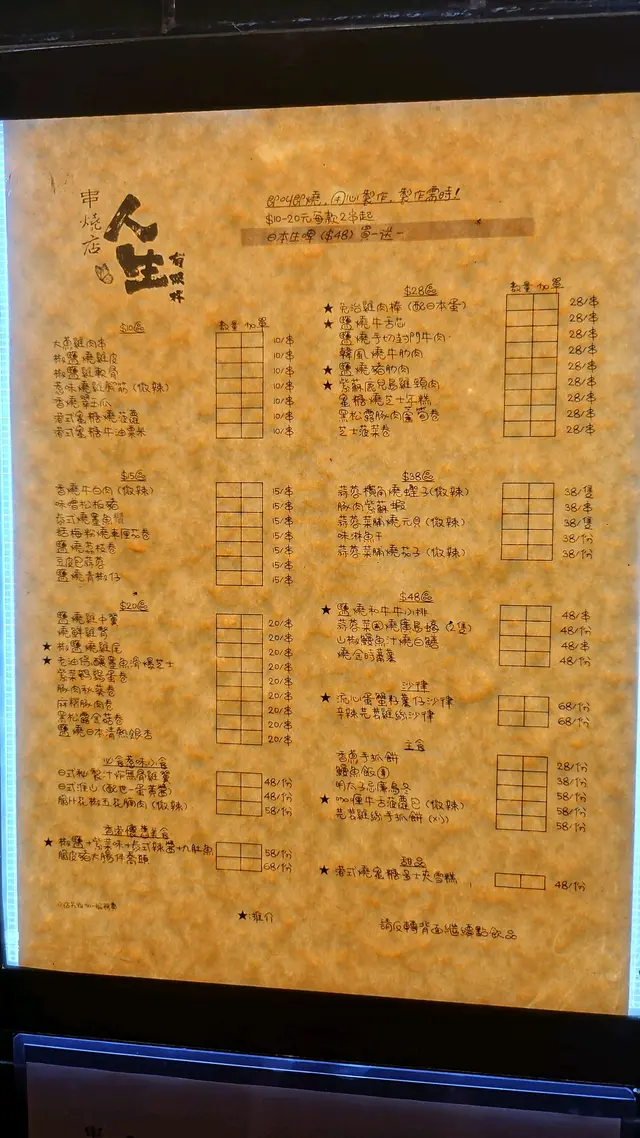 串燒店
人生
有限杯
即叫即燒，用心製作，製作需時！
$10-20元每款2串起
日本生啤 ($48) 買一送一
$10區
數量 加單
大蔥雞肉串 10/串
椒鹽燒雞皮 10/串
椒鹽雞軟骨 10/串
惹味燒雞腎筋 (微辣) 10/串
香燒翠玉瓜 10/串
港式蜜糖燒菠蘿 10/串
港式蜜糖牛油粟米 10/串
$15區
香燒牛白肉 (微辣) 15/串
味噌松板豬 15/串
泰式燒墨魚鬚 15/串
15/串
鹽燒 15/串
豆皮包蒜蓉 15/串
鹽燒青椒仔 15/串
$20區
鹽燒雞中翼 20/串
燒鮮雞腎 20/串
★ 椒鹽燒雞尾 20/串
★ 墨魚滑爆芝士 20/串
紫菜鵪鶉蛋卷 20/串
豚肉秋葵卷 20/串
豚肉卷 20/串
黑松露金菇卷 20/串
鹽燒日本清熱銀杏 20/串
必食惹味小食
日式秘製汁炸無骨雞翼 48/份
日式淮山 48/份
脆卜卜花椒五花腩肉 (微辣) 58/份
宵夜優惠美食
★ 椒鹽+紫菜味+泰式辣醬+九肚魚 58/份
脆皮豬大腸伴蕎頭 68/份
★:推介
$28區
數量 加單
★ 免治雞肉棒 (配日本蛋) 28/串
★ 鹽燒牛舌芯 28/串
鹽燒手切封門牛肉 28/串
韓風燒牛肋肉 28/串
★ 鹽燒豬肋肉 28/串
★ 紫蘇鹿兒島雞頸肉 28/串
蜜糖燒芝士年糕 28/串
黑松露豚肉蘆筍卷 28/串
芝士菠菜卷 28/串
$38區
蒜蓉橫角燒蟶子 (微辣) 38/隻
豚肉紫蘇蝦 38/串
蒜蓉菜脯燒元貝 (微辣) 38/隻
味淋魚干 38/份
蒜蓉菜脯燒茄子 (微辣) 38/份
$48區
★ 鹽燒和牛牛小排 48/串
蒜蓉菜脯燒廣島蠔 (2隻) 48/份
山椒鰻魚汁燒白鱔 48/串
燒金時蕃薯 48/份
沙律
★ 流心蛋蟹籽薯仔沙律 68/份
辛辣芫荽雞絲沙律 68/份
主食
香蔥手抓餅 28/份
鰻魚飯 38/份
明太子忌廉烏冬 58/份
★ 咖喱牛舌菠蘿包 (微辣) 58/份
芫荽雞絲手抓餅 58/份
甜品
★ 港式燒蜜糖多士夾雪糕 48/份
請反轉背面繼續點飲品